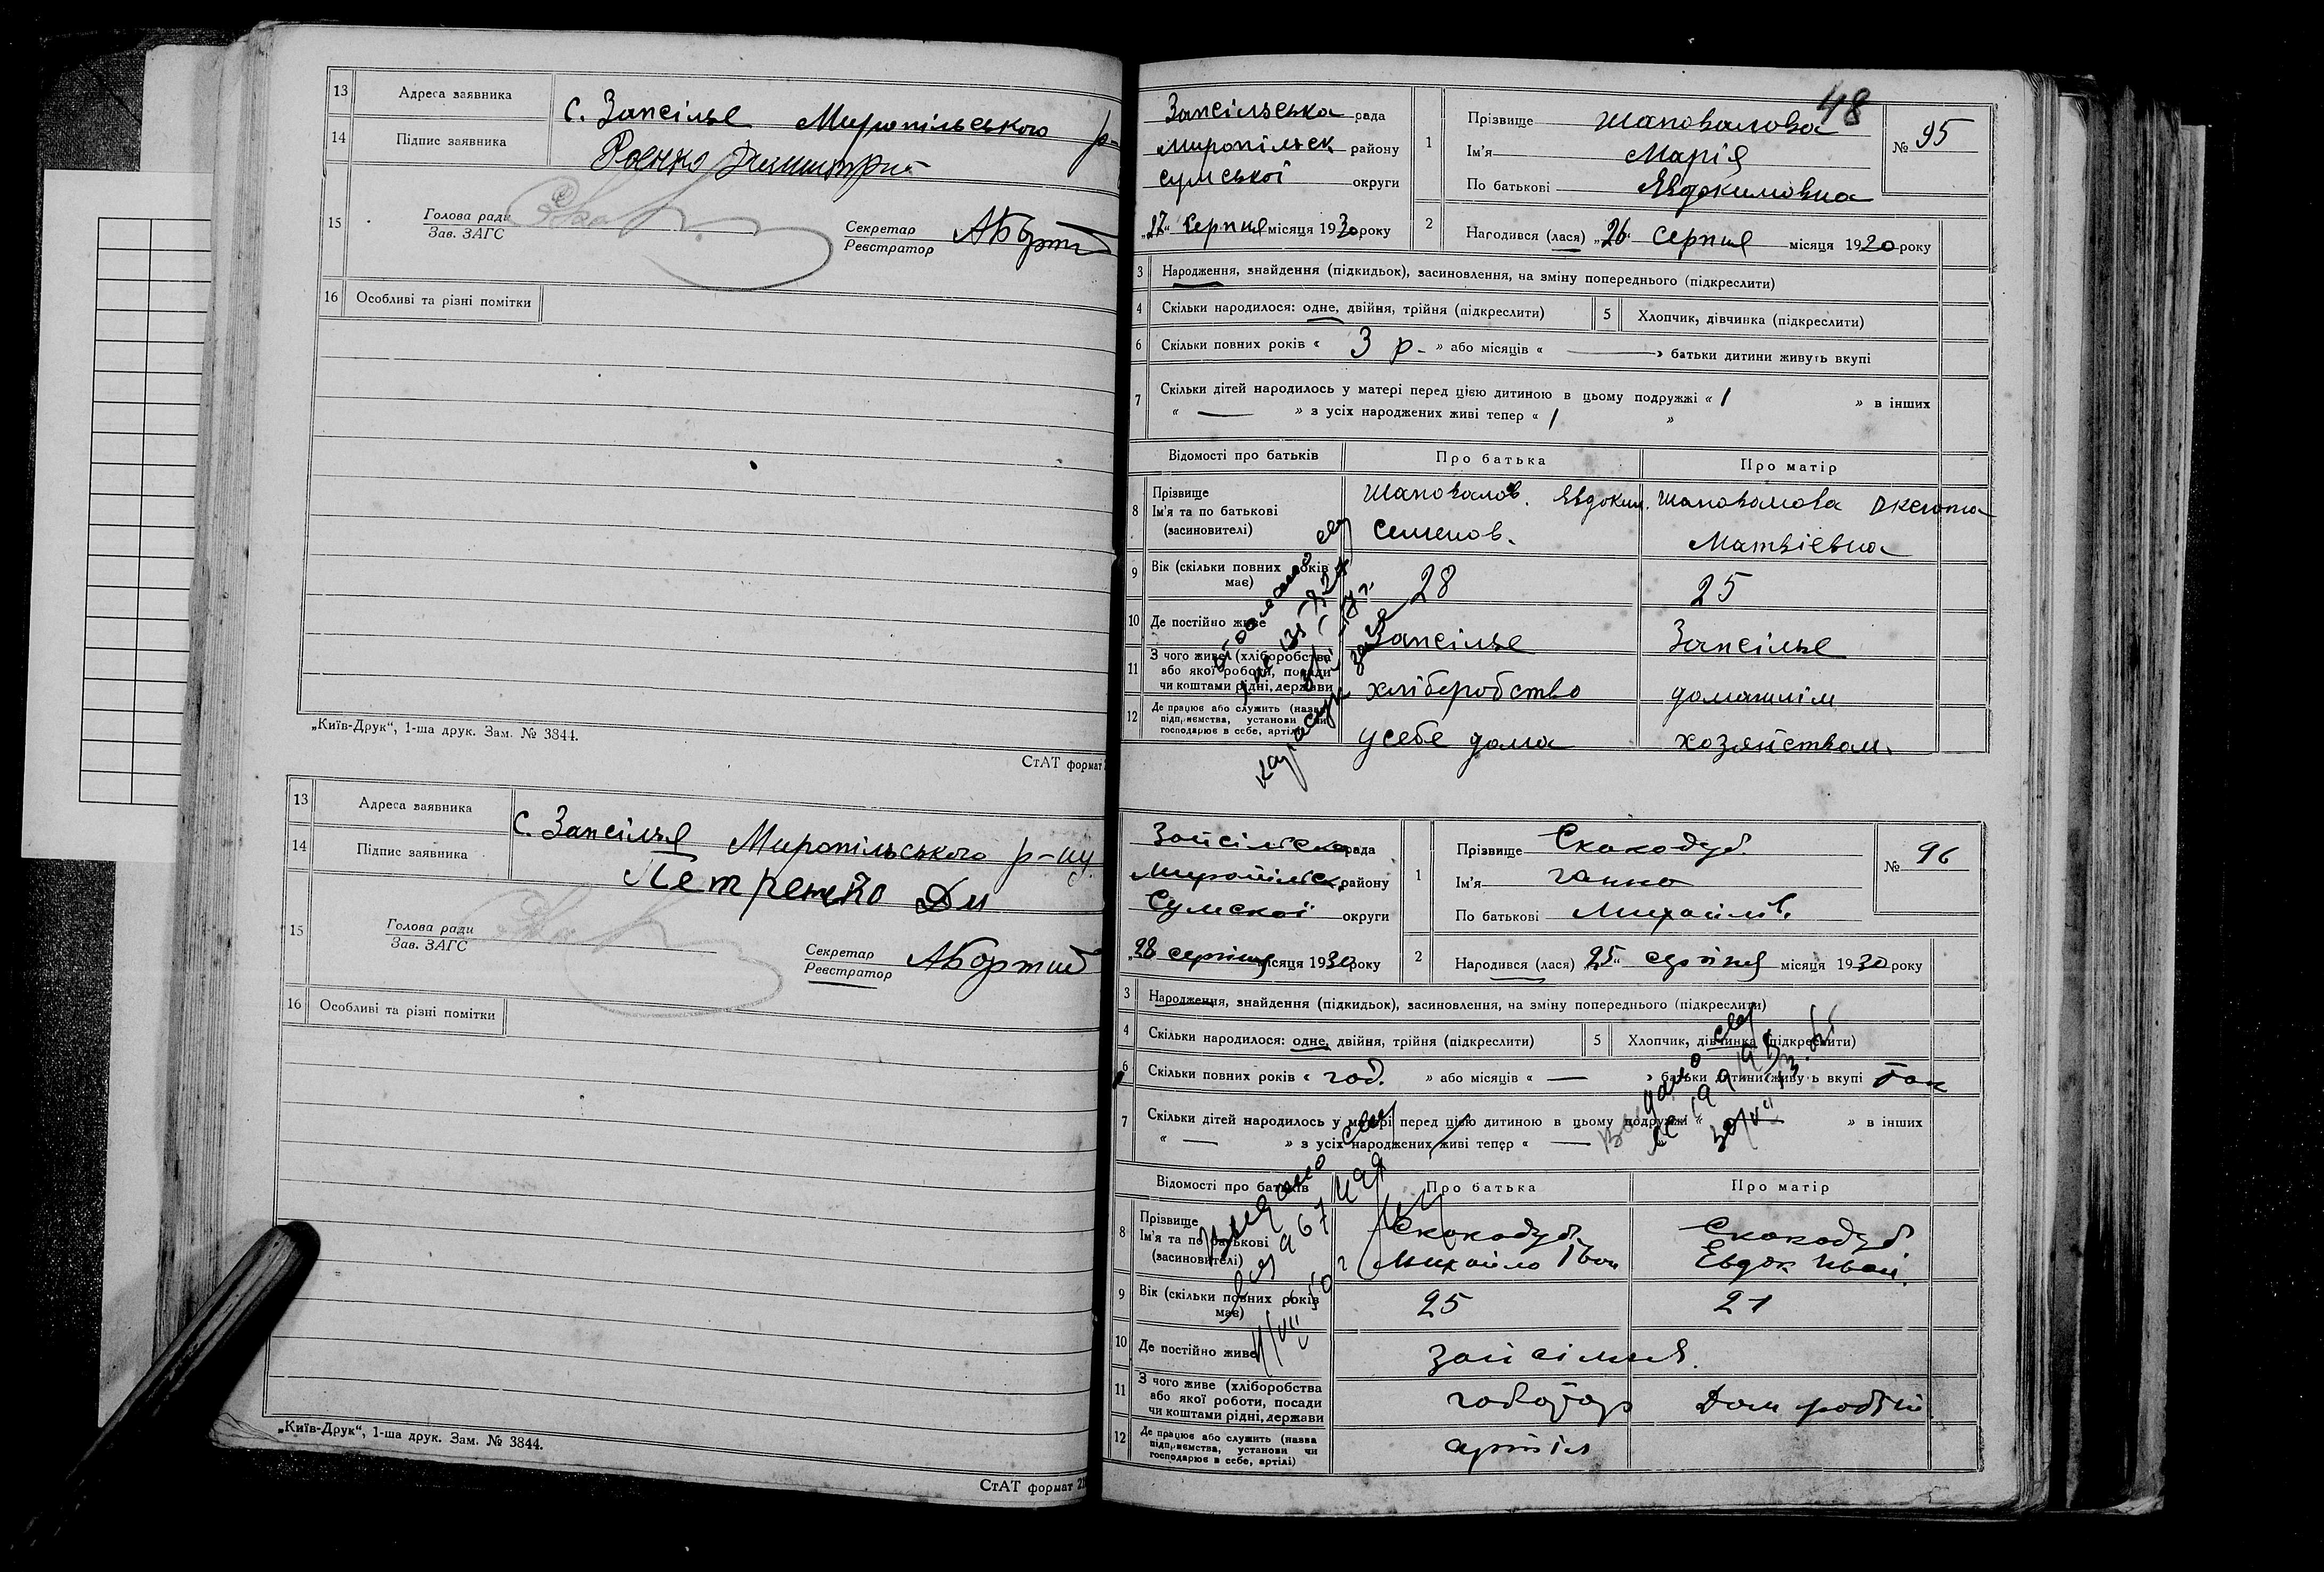 13 Адреса заявника с. Запсілье Миропільського р-
14 Підпис заявника Роенко
15 Голова ради
Зав. ЗАГС
Секретар
Реєстратор
16 Особливі та різні помітки
„Київ-Друк“, 1-ша друк. Зам. № 3844.
СтАТ формат
13 Адреса заявника с. Запсілья Миропільського р-ну
14 Підпис заявника Петренко Дм
15 Голова ради
Зав. ЗАГС
Секретар
Реєстратор
16 Особливі та різні помітки
„Київ-Друк“, 1-ша друк. Зам. № 3844.
СтАТ формат
48
Запсільська рада
Миропільск району
Сумської округи
„27“ Серпня місяця 1930 року
1 Прізвище Шаповалова
Ім'я Марія
По батькові Явдокимовна
№ 95
2 Народився (лася) „26“ серпня місяця 1920 року
3 Народження, знайдення (підкидьок), засиновлення, на зміну попереднього (підкреслити)
4 Скільки народилося: одне, двійня, трійня (підкреслити) 5 Хлопчик, дівчинка (підкреслити)
6 Скільки повних років « 3 р. » або місяців « — » батьки дитини живуть вкупі
7 Скільки дітей народилось у матері перед цією дитиною в цьому подружжі « 1 » в інших
« — » з усіх народжених живі тепер « 1 »
Відомості про батьків Про батька Про матір
8 Прізвище
Ім'я та по батькові
(засиновителі)
Шаповалов. Явдоким. Семенов.
Шаповалова Матвіевна
9 Вік (скільки повних років має) 28 25
10 Де постійно живе Запсілье Запсілье
11 З чого живе (хліборобства
або якої роботи, посади
чи коштами рідні, держави
хліборобство домашнім
12 Де працює або служить (назва
підприємства, установи чи
господарює в себе, артілі)
у себе дома хозяйством.
рада
району
Сумскої округи
„28 серпня місяця 1930 року
1 Прізвище Скакодуб
Ім'я Ганна
По батькові Михайлів.
№ 96
2 Народився (лася) „25“ серпня місяця 1930 року
3 Народження, знайдення (підкидьок), засиновлення, на зміну попереднього (підкреслити)
4 Скільки народилося: одне, двійня, трійня (підкреслити) 5 Хлопчик, дівчинка (підкреслити)
6 Скільки повних років « год. » або місяців « — » батьки дитини живуть вкупі так
7 Скільки дітей народилось у матері перед цією дитиною в цьому подружжі « — » в інших
« — » з усіх народжених живі тепер « —
Відомості про батьків Про батька Про матір
8 Прізвище
Ім'я та по батькові
(засиновителі)
Скакодуб Михайло Іван
Скакодуб Евдок. Иван.
9 Вік (скільки повних років має) 25 21
10 Де постійно живе
11 З чого живе (хліборобства
або якої роботи, посади
чи коштами рідні, держави
Дом робітн
12 Де працює або служить (назва
підприємства, установи чи
господарює в себе, артілі)
артіл